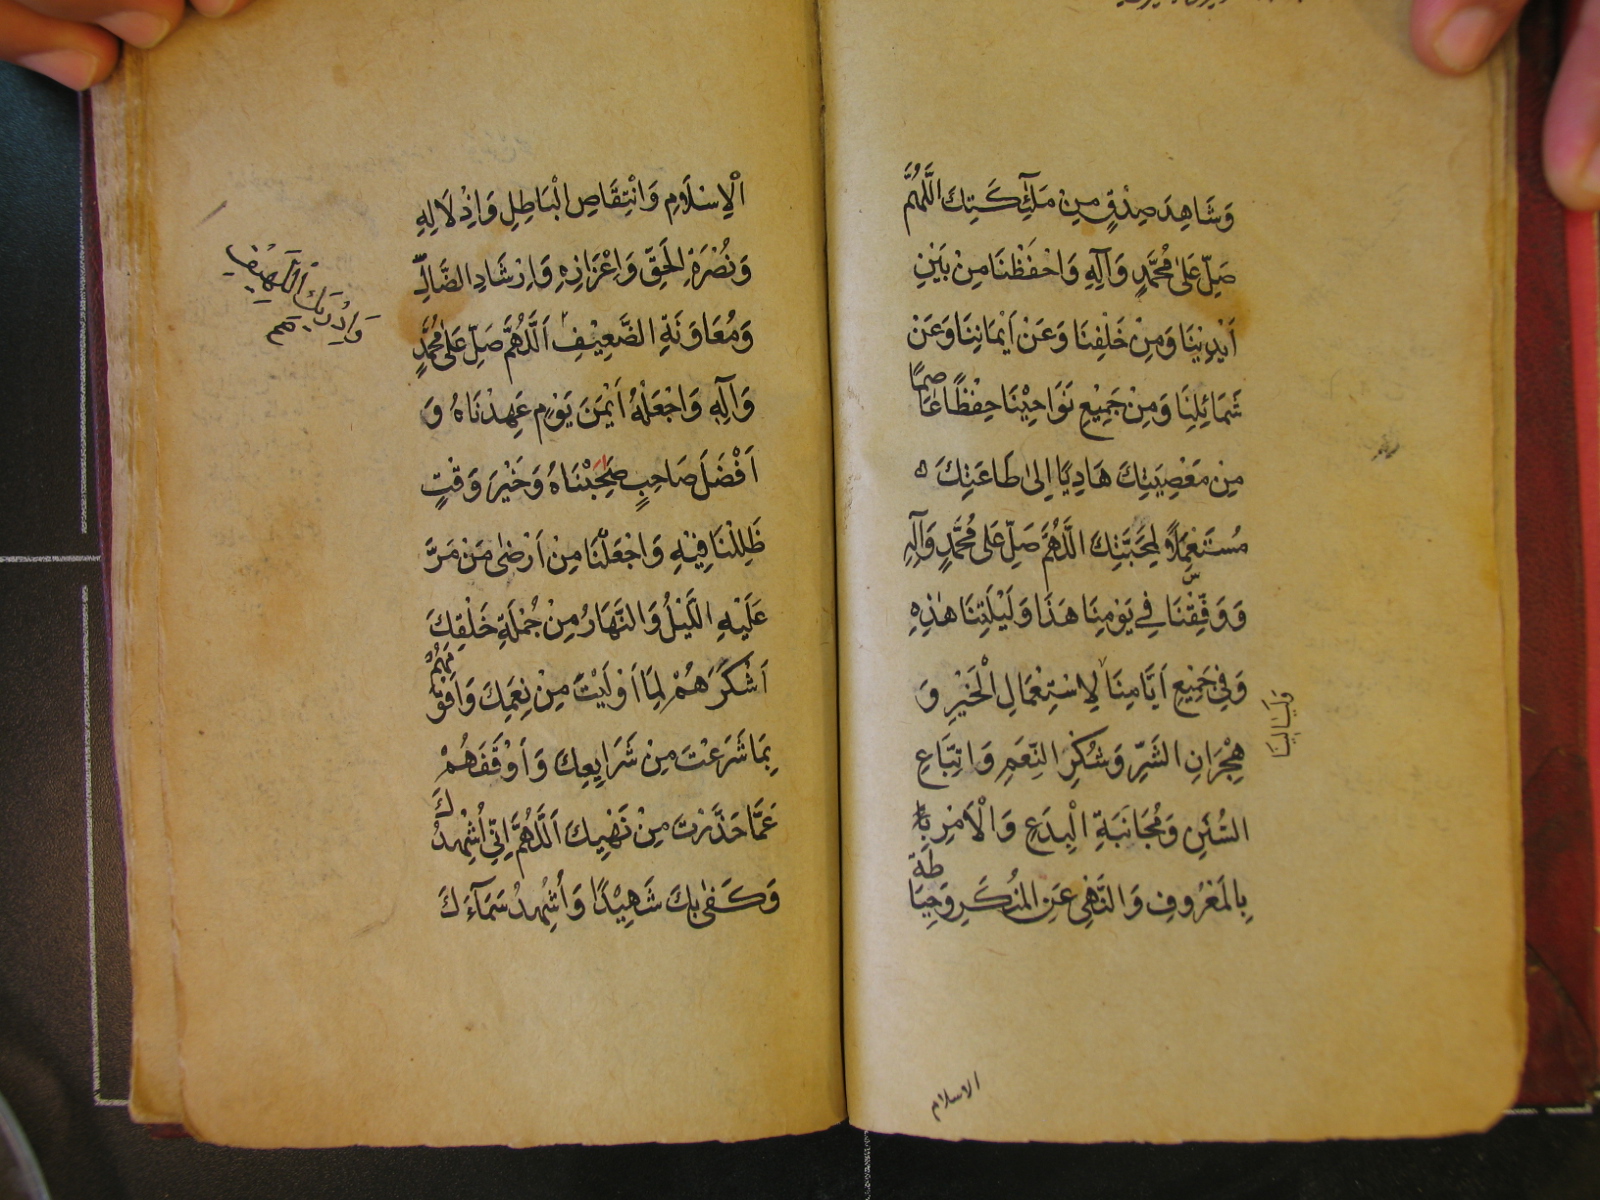 وَشَاهِدَ صِدْقٍ مِنْ مَلَٰٓئِكَتِكَ اَللّٰهُمَّ
صَلِّ عَلىٰ مُحَمَّدٍ وَآلِهِ وَاحْفَظْنَا مِنْ بَيْنِ
اَيْدِيْنَا وَمِنْ خَلْفِنَا وَعَنْ اَيْمَانِنَا وَعَنْ
شَمَائِلِنَا وَمِنْ جَمِيْعِ نَوَاحِيْنَا حِفْظًا عَاصِمًا
مِنْ مَعْصِيَتِكَ هَادِيًا اِلىٰ طَاعَتِكَ
مُسْتَعْمِلًا لِمَحَبَّتِكَ اَللّٰهُمَّ صَلِّ عَلىٰ مُحَمَّدٍ وَآلِهِ
وَوَفِّقْنَا فِي يَوْمِنَا هَذَا وَلَيْلَتِنَا هٰذِهِ
وَفِي جَمِيْعِ اَيَّامِنَا لِاسْتِعْمَالِ الْخَيْرِ وَ
وليالينا
هِجْرَانِ الشَّرِّ وَشُكْرِ النِّعَمِ وَاتِّبَاعِ
السُّنَنِ وَمُجَانَبَةِ الْبِدَعِ وَالْاَمْرِ
بِالْمَعْرُوفِ وَالنَّهْيِ عَنِ الْمُنْكَرِ وَحِيَاطَةِ
الاسلام
اَلْاِسْلَامِ وَانْتِقَاصِ الْبَاطِلِ وَاِذْلَالِهِ
وَنُصْرَةِ الْحَقِّ وَاِعْزَازِهِ وَاِرْشَادِ الضَّالِّ
وَمُعَاوَنَةِ الضَّعِيْفِ اَللّٰهُمَّ صَلِّ عَلىٰ مُحَمَّدٍ
وَاِدْرَاكِ اللَّهِيْفِ
وَآلِهِ وَاجْعَلْهُ اَيْمَنَ يَوْمٍ عَهِدْنَاهُ وَ
اَفْضَلَ صَاحِبٍ صَحِبْنَاهُ وَخَيْرَ وَقْتٍ
ظَلِلْنَا فِيْهِ وَاجْعَلْنَا مِنْ اَرْضىٰ مَنْ مَرَّ
عَلَيْهِ اللَّيْلُ وَالنَّهَارُ مِنْ جُمْلَةِ خَلْقِكَ
اَشْكَرَهُمْ لِمَا اَوْلَيْتَ مِنْ نِعَمِكَ وَاَقْوَمَهُمْ
بِمَا شَرَعْتَ مِنْ شَرَايِعِكَ وَاَوْقَفَهُمْ
عَمَّا حَذَّرْتَ مِنْ نَهْيِكَ اَللّٰهُمَّ اِنِّي اُشْهِدُكَ
وَكَفىٰ بِكَ شَهِيْدًا وَاُشْهِدُ سَمَآءَكَ